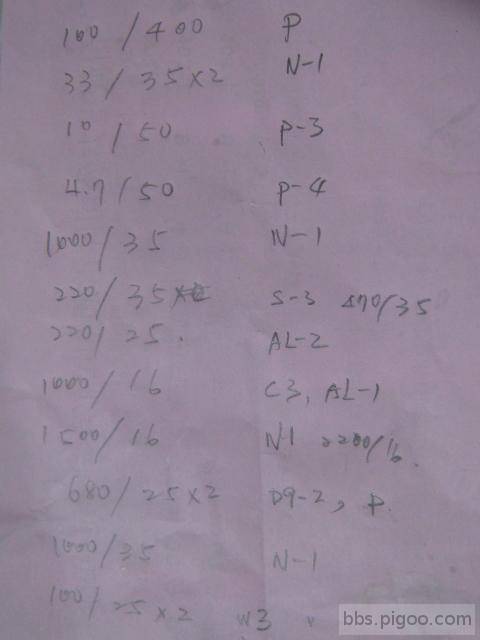 100 / 400 P
33 / 35 x 2 N-1
10 / 50 P-3
4.7 / 50 P-4
1000 / 35 N-1
220 / 35 S-3 470/35
220 / 25. AL-2
1000 / 16 C3, AL-1
1500 / 16 N1 2200/16.
680 / 25 x 2 D9-2, P.
1000 / 35 N-1
100 / 25 x 2 W3
bbs.pigoo.com